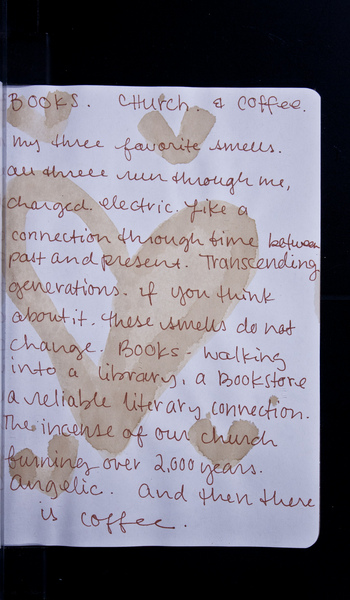 BOOKS. CHURCH. & COFFEE.
My three favorite smells.
All three run through me,
charged. electric. Like a
connection through time between
past and present. Transcending
generations. if you think
about it. these smells do not
change. BOOKS - walking
into a library, a BOOKstore
a reliable literary connection.
The incense of our church
burning over 2,000 years.
angelic. And then there
is coffee.